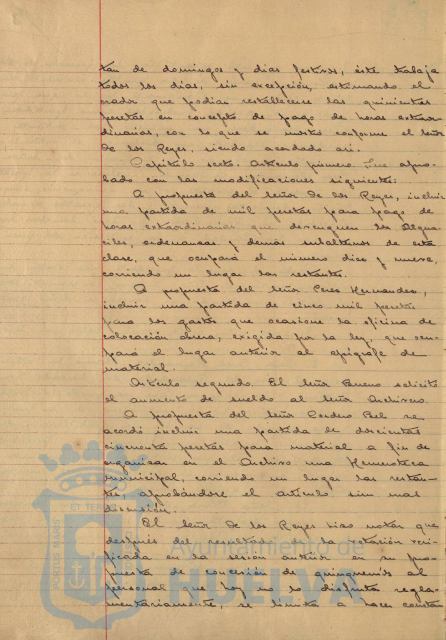 tan de domingos y dias festivos, éste trabaja
todos los dias, sin excepción, estimando el
orador que podian restablecerse las quinientas
pesetas en concepto de pago de horas extraor-
dinarias, con lo que se mostró conforme el señor
de los Reyes, siendo acordado asi.
Capítulo sexto. Artículo primero. Fue apro-
bado con las modificaciones siguientes:
A propuesta del Señor de los Reyes, incluir
una partida de mil pesetas para pago de
horas extraordinarias que devenguen los Algua-
ciles, ordenanzas y demás subalternos de esta
clase, que ocupará el número diez y nueve,
corriendo un lugar los restantes.
A propuesta del Señor Ceres Hernandez,
incluir una partida de cinco mil pesetas
para los gastos que ocasione la oficina de
colocación obrera, exigida por la ley, que ocu-
pará el lugar anterior al epígrafe de
material.
Artículo segundo. El Señor Bueno solicitó
el aumento de sueldo al Señor Archivero.
A propuesta del Señor Cordero Bel se
acordó incluir una partida de doscientas
cincuenta pesetas para material a fin de
organizar en el Archivo una Hemeroteca
municipal, corriendo un lugar las restan-
tes, aprobándose el artículo sin mas
discusión.
El Señor de los Reyes hizo notar que
después del resultado de la votación veri-
ficada en la sesión anterior en su pro-
puesta de concesión de quinquenios al
personal que hoy no lo disfruta regla-
mentariamente, se limita a hacer constar
PORTUS MARIS ET TERRAE
Ayuntamiento de
HUELVA